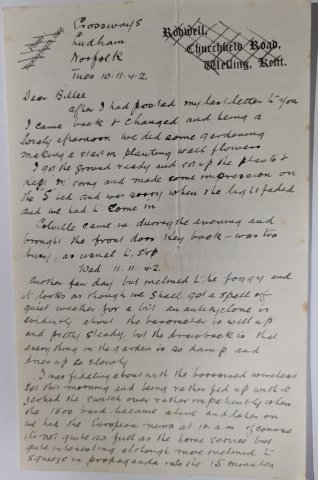 Crossways
Ludham
Norfolk
Tues 10.11.42.
Rodwell,
Churchfield Road,
Welling, Kent.
Dear Billee
after I had posted my last letter to you
I came back & changed and being a
lovely afternoon we did some gardening
making a start on planting wall flowers
I got the ground ready and got up the plants &
kept M going and made some impression on
the "S" bed and was sorry when the light faded
and we had to come in
Colville came in during the evening and
brought the front door key back - was too
busy, as usual to stop
Wed 11.11.42.
Another fair day but inclined to be foggy and
it looks as though we shall get a spell of
quiet weather for a bit. An anticyclone is
evidently about the barometer is well up
and pretty steady, but the drawback is that
everything in the garden is so damp and
dries up so slowly
I was fiddling about with the borrowed wireless
set this morning and being rather fed up with it
I jerked the switch over rather impatiently when
the 1500 band became alive and later on
we had the European news at 10 a.m. of course
its not quite so full as the home service but
quite interesting although more inclined to
squeeze in propaganda into the 15 minutes